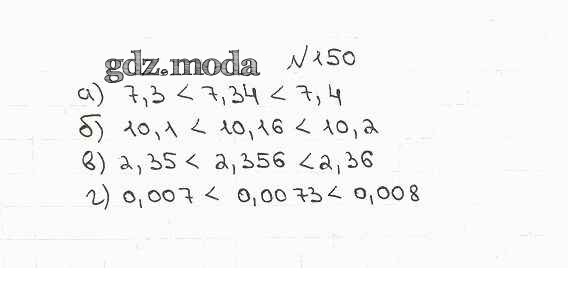 gdz.moda №150
а) 7,3 < 7,34 < 7,4
б) 10,1 < 10,16 < 10,2
в) 2,35 < 2,356 < 2,36
г) 0,007 < 0,0073 < 0,008